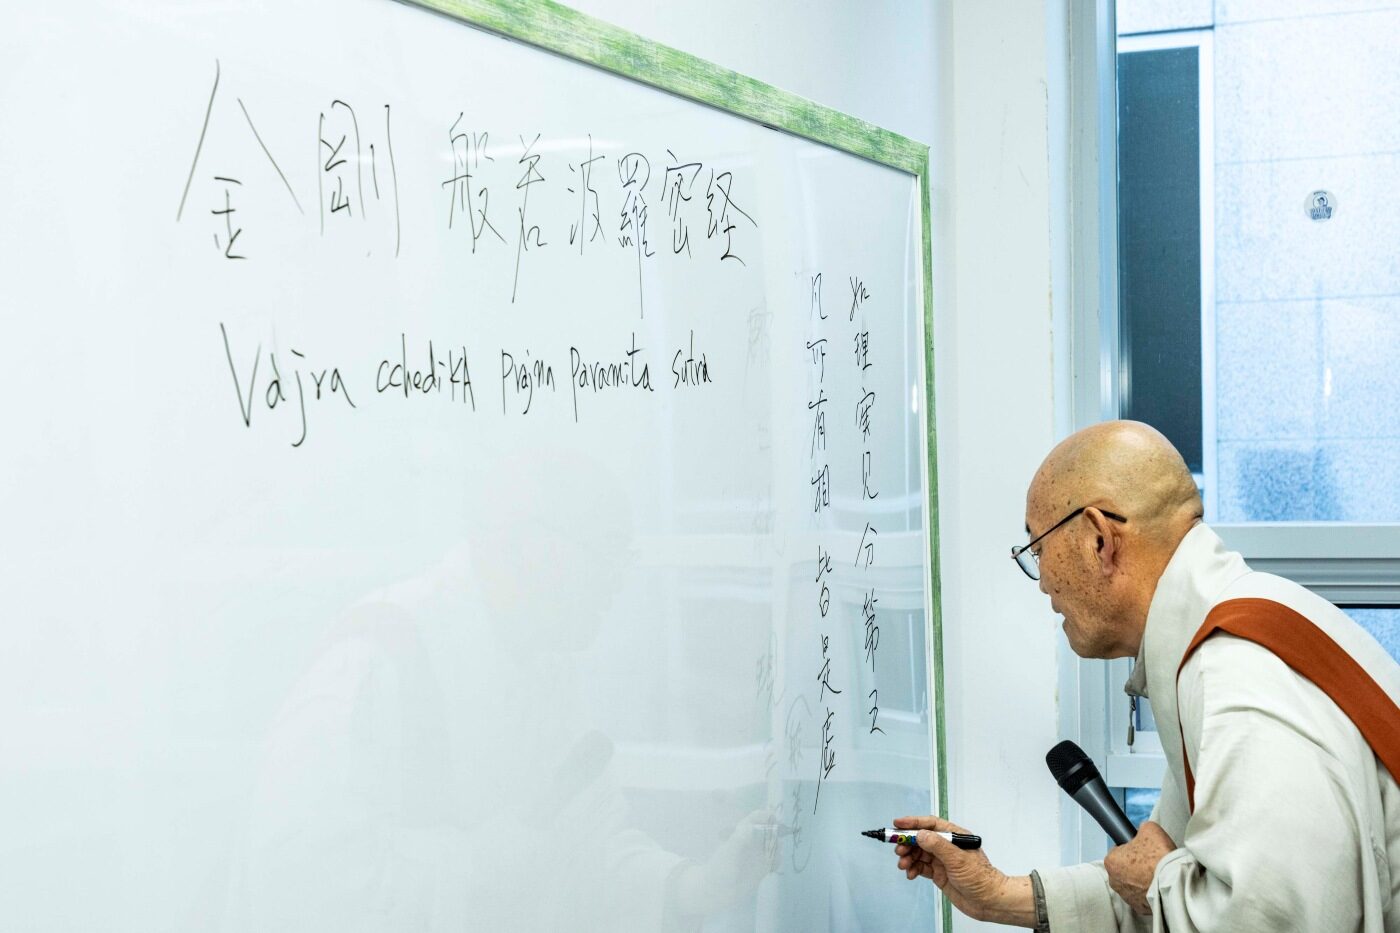 金剛 般若波羅密経
Vajra cchedikA prajna paramita sutra
如理実见分第五
凡所有相皆是虚